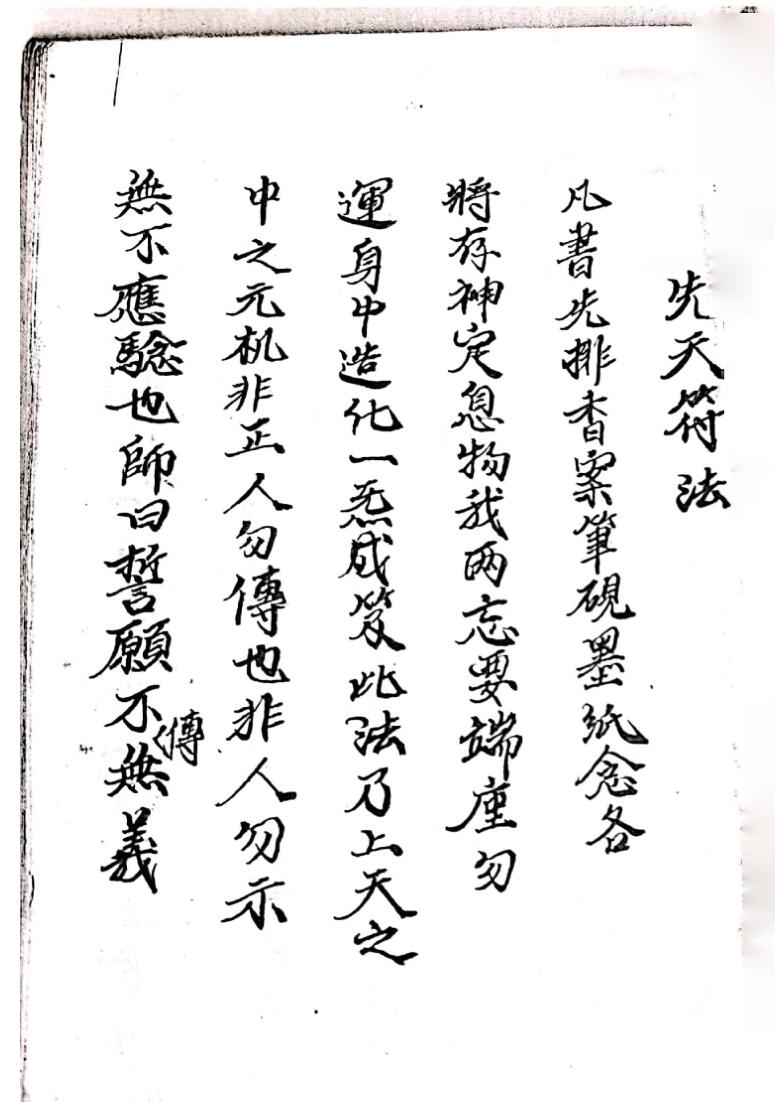 先天符法
凡書先排香案筆硯墨紙念各
將存神定息物我両忘要端坐勿
運身中造化一炁成笈此法乃上天之
中之元机非正人勿傳也非人勿示
無不應驗也師曰誓願不傳無義